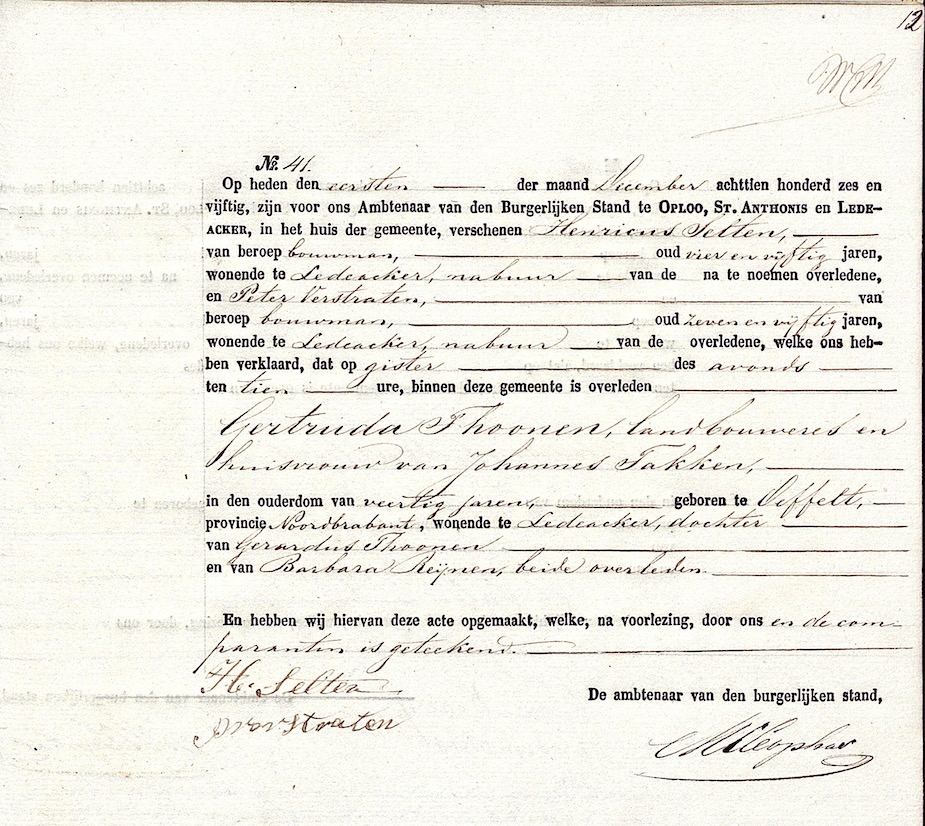 12
No. 41.
Op heden den eersten der maand December achttien honderd zes en
vijftig, zijn voor ons Ambtenaar van den Burgerlijken Stand te OPLOO, ST. ANTHONIS en LEDE-
ACKER, in het huis der gemeente, verschenen Henricus Selten,
van beroep bouwman, oud vier en vijftig jaren,
wonende te Ledeacker, nabuur van de na te noemen overledene,
en Peter Verstraten, van
beroep bouwman, oud zeven en vijftig jaren,
wonende te Ledeacker, nabuur van de overledene, welke ons heb-
ben verklaard, dat op gister des avonds
ten tien ure, binnen deze gemeente is overleden
Gertruda Thoonen, landbouweres en
huisvrouw van Johannes Takken,
in den ouderdom van veertig jaren, geboren te Oeffelt,
provincie Noordbrabant, wonende te Ledeacker, dochter
van Gerardus Thoonen
en van Barbara Reijnen, beide overleden.
En hebben wij hiervan deze acte opgemaakt, welke, na voorlezing, door ons en de com-
paranten is geteekend.
H. Selten
De ambtenaar van den burgerlijken stand,
p verstraten